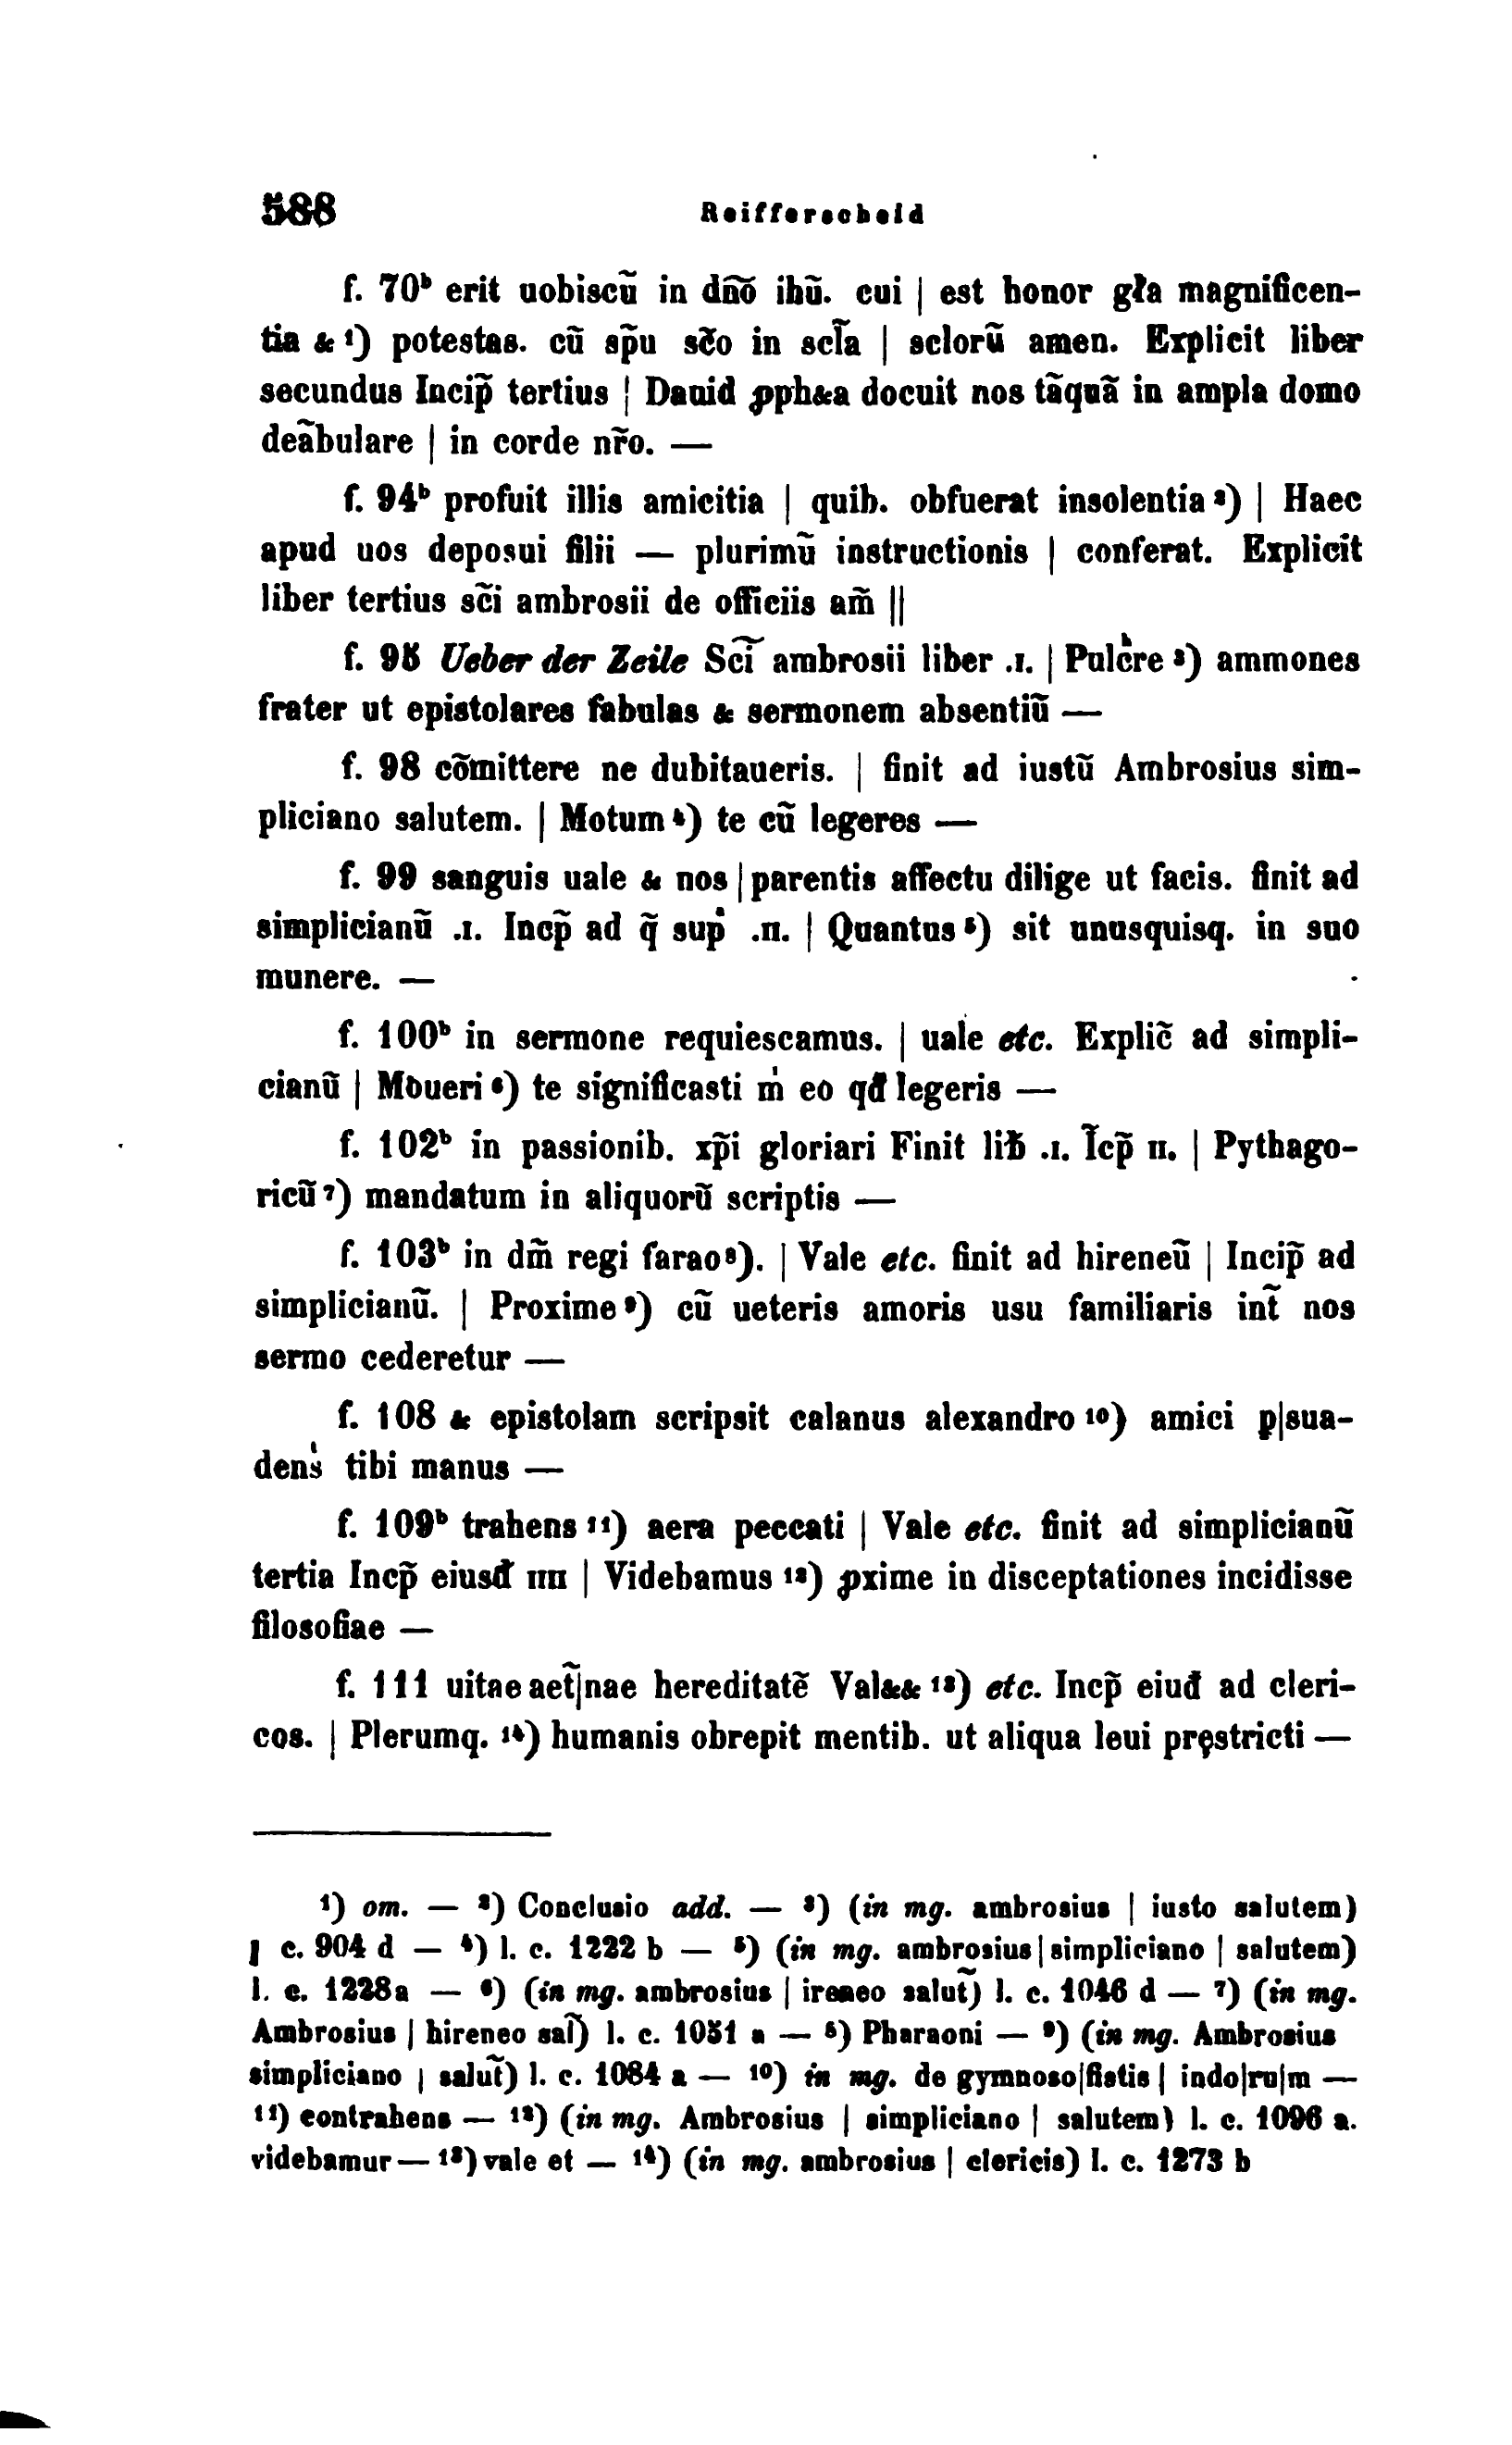 588 Reifferscheid
f. 70ᵇ erit uobiscũ in dn̄õ ihũ. cui | est honor gła magnificen-
tia & ¹) potestas. cũ sp̃u sc̃o in scl̃a | sclorũ amen. Explicit liber
secundus Incip̃ tertius | Dauid ꝓph&a docuit nos tãquã in ampla domo
deãbulare | in corde nr̃o. —
f. 94ᵇ profuit illis amicitia | quib. obfuerat insolentia ²) | Haec
apud uos deposui filii — plurimũ instructionis | conferat. Explicit
liber tertius sc̃i ambrosii de officiis am̃ ||
f. 95 Ueber der Zeile Scı̃ ambrosii liber .ı. | Pulcͪre ³) ammones
frater ut epistolares fabulas & sermonem absentiũ —
f. 98 cõmittere ne dubitaueris. | finit ad iustũ Ambrosius sim-
pliciano salutem. | Motum ⁴) te cũ legeres —
f. 99 sanguis uale & nos | parentis affectu dilige ut facis. finit ad
simplicianũ .ı. Incp̃ ad q̃ sup̓ .ıı. | Quantus ⁵) sit unusquisq. in suo
munere. —
f. 100ᵇ in sermone requiescamus. | uale etc. Explic̃ ad simpli-
cianũ | Moueri ⁶) te significasti m̓ eo qđ legeris —
f. 102ᵇ in passionib. xp̃i gloriari Finit lib̶ .ı. Ĩcp̃ ıı. | Pythago-
ricũ ⁷) mandatum in aliquorũ scriptis —
f. 103ᵇ in dm̃ regi farao ⁸). | Vale etc. finit ad hireneũ | Incip̃ ad
simplicianũ. | Proxime ⁹) cũ ueteris amoris usu familiaris int̃ nos
sermo cederetur —
f. 108 & epistolam scripsit calanus alexandro ¹⁰) amici ꝑ|sua-
dens̓ tibi manus —
f. 109ᵇ trahens ¹¹) aera peccati | Vale etc. finit ad simplicianũ
tertia Incp̃ eiusđ ıııı | Videbamus ¹²) ꝓxime in disceptationes incidisse
filosofiae —
f. 111 uitae aet̃|nae hereditatẽ Val&& ¹³) etc. Incp̃ eiuđ ad cleri-
cos. | Plerumq. ¹⁴) humanis obrepit mentib. ut aliqua leui pręstricti —
¹) om. — ²) Conclusio add. — ³) (in mg. ambrosius | iusto salutem)
l c. 904 d — ⁴) l. c. 1222 b — ⁵) (in mg. ambrosius | simpliciano | salutem)
l. c. 1228 a — ⁶) (in mg. ambrosius | ireneo salut̃) l. c. 1046 d — ⁷) (in mg.
Ambrosius | hireneo sal̃) l. c. 1051 a — ⁸) Pharaoni — ⁹) (in mg. Ambrosius
simpliciano | salut̃) l. c. 1084 a — ¹⁰) in mg. de gymnoso|fistis | indo|ru|m —
¹¹) contrahens — ¹²) (in mg. Ambrosius | simpliciano | salutem) l. c. 1096 a.
videbamur — ¹³) vale et — ¹⁴) (in mg. ambrosius | clericis) l. c. 1273 b